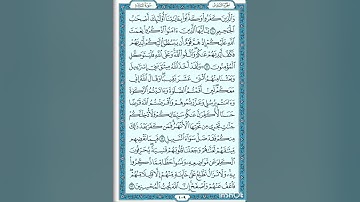 وَٱلَّذِينَ كَفَرُوا۟ وَكَذَّبُوا۟ بِـَٔايَـٰتِنَآ أُو۟لَـٰٓئِكَ أَصْحَـٰبُ
ٱلْجَحِيمِ ١٠ يَـٰٓأَيُّهَا ٱلَّذِينَ ءَامَنُوا۟ ٱذْكُرُوا۟ نِعْمَتَ
ٱللَّهِ عَلَيْكُمْ إِذْ هَمَّ قَوْمٌ أَن يَبْسُطُوٓا۟ إِلَيْكُمْ أَيْدِيَهُمْ
فَكَفَّ أَيْدِيَهُمْ عَنكُمْ وَٱتَّقُوا۟ ٱللَّهَ وَعَلَى ٱللَّهِ فَلْيَتَوَكَّلِ
ٱلْمُؤْمِنُونَ ١١ وَلَقَدْ أَخَذَ ٱللَّهُ مِيثَـٰقَ بَنِىٓ إِسْرَٰٓءِيلَ
وَبَعَثْنَا مِنْهُمُ ٱثْنَىْ عَشَرَ نَقِيبًا وَقَالَ ٱللَّهُ إِنِّى
مَعَكُمْ لَئِنْ أَقَمْتُمُ ٱلصَّلَوٰةَ وَءَاتَيْتُمُ ٱلزَّكَوٰةَ
وَءَامَنتُم بِرُسُلِى وَعَزَّرْتُمُوهُمْ وَأَقْرَضْتُمُ ٱللَّهَ قَرْضًا
حَسَنًا لَّأُكَفِّرَنَّ عَنكُمْ سَيِّـَٔاتِكُمْ وَلَأُدْخِلَنَّكُمْ
جَنَّـٰتٍ تَجْرِى مِن تَحْتِهَا ٱلْأَنْهَـٰرُ فَمَن كَفَرَ بَعْدَ ذَٰلِكَ
مِنكُمْ فَقَدْ ضَلَّ سَوَآءَ ٱلسَّبِيلِ ١٢ فَبِمَا نَقْضِهِم
مِّيثَـٰقَهُمْ لَعَنَّـٰهُمْ وَجَعَلْنَا قُلُوبَهُمْ قَـٰسِيَةً يُحَرِّفُونَ
ٱلْكَلِمَ عَن مَّوَاضِعِهِۦ وَنَسُوا۟ حَظًّا مِّمَّا ذُكِّرُوا۟
بِهِۦ وَلَا تَزَالُ تَطَّلِعُ عَلَىٰ خَآئِنَةٍ مِّنْهُمْ إِلَّا قَلِيلًا مِّنْهُمْ
فَٱعْفُ عَنْهُمْ وَٱصْفَحْ إِنَّ ٱللَّهَ يُحِبُّ ٱلْمُحْسِنِينَ ١٣
١٠٩